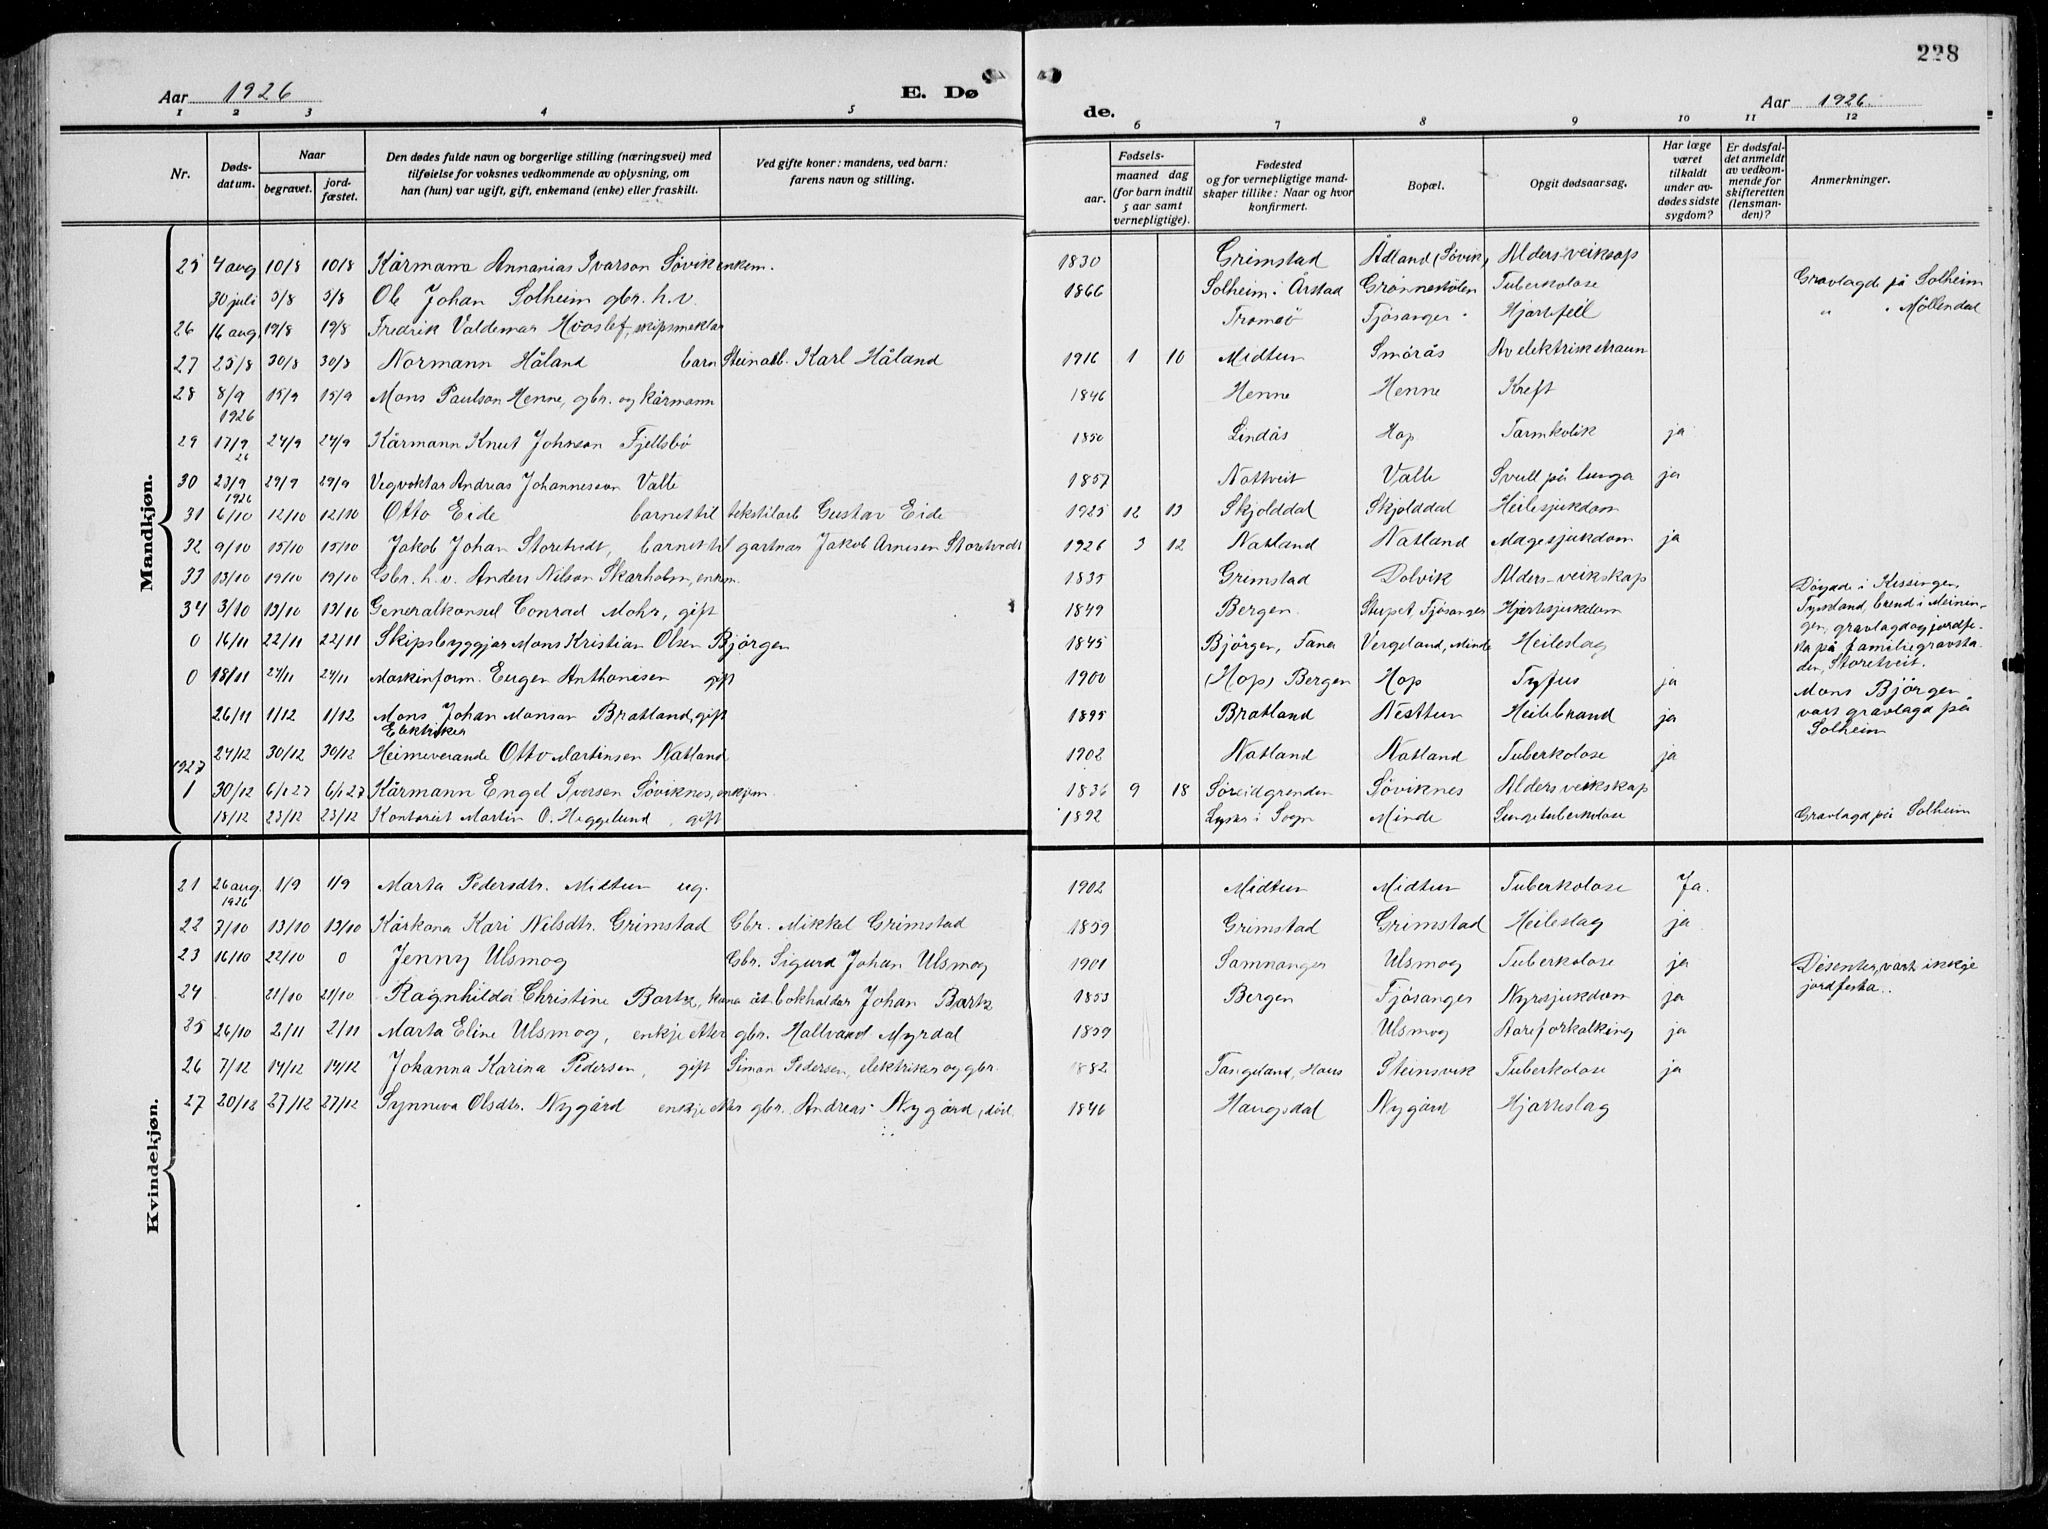 228
Aar 1926
E. Dø
de.
Aar 1926.
1 2 3 4 5 6 7 8 9 10 11 12
Nr. Døds-datum. Naar begravet. jord-fæstet. Den dødes fulde navn og borgerlige stilling (næringsvei) med tilføielse for voksnes vedkommende av oplysning, om han (hun) var ugift, gift, enkemand (enke) eller fraskilt. Ved gifte koner: mandens, ved barn: farens navn og stilling. Fødsels- aar. maaned dag (for barn indtil 5 aar samt vernepligtige). Fødested og for vernepligtige mand-skaper tillike: Naar og hvor konfirmert. Bopæl. Opgit dødsaarsag. Har læge været tilkaldt under av-dødes sidste sygdom? Er dødsfal-det anmeldt av vedkom-mende for skifteretten (lensman-den)? Anmerkninger.
Mandkjøn.
25 4 aug 10/8 10/8 Kårmann Annanias Ivarson Søvik enkem. 1830 Grimstad Ådland (Søvik) Alders-veikskap
30 juli 5/8 5/8 Ole Johan Solheim gbr. h.v. 1866 Solheim i Årstad Grønnestølen Tuberkolose Gravlagde på Solheim
26 16 aug. 19/8 19/8 Fredrik Valdemar Hvoslef, skipsmeklar Tromsø Fjøsanger Hjartefeil " " Møllendal
27 25/8 30/8 30/8 Normann Håland barn Steinarb. Karl Håland 1916 1 10 Midtun Smørås Av elektrisk straum
28 8/9 1926 15/9 15/9 Mons Paulson Henne, gbr. og kårmann 1846 Henne Henne Kreft
29 17/9 26 24/9 24/9 Kårmann Knut Johnson Fjellsbø 1850 Lindås Hop Tarmkolik ja
30 23/9 1926 29/9 29/9 Vegvoktar Andreas Johannesson Valle 1857 Nattveit Valle Svull på lunga ja
31 6/10 12/10 12/10 Otto Eide barnet til tekstilarb Gustav Eide 1925 12 13 Skjolddal Skjolddal Heilesjukdom
32 9/10 15/10 15/10 Jakob Johan Storetvedt, barnet til gartnar Jakob Arnesen Storetvedt 1926 3 12 Natland Natland Magesjukdom ja
33 13/10 19/10 19/10 Gbr. h.v. Anders Nilson Skarholm, enkm. 1835 Grimstad Dolvik Alders-veikskap
34 3/10 13/10 13/10 Generalkonsul Conrad Mohr, gift 1849 Bergen. Stupet Fjøsanger Hjartesjukdom Døydde i Kissingen, Tyskland, brend i Meinin-gen, gravlagd og jordfe-sta på familiegravsta-den, Storetveit.
0 16/11 22/11 22/11 Skipsbyggjar Mons Kristian Olsen Bjørgen 1845 Bjørgen, Fana Vergeland, Minde Heileslag
0 18/11 24/11 24/11 Maskinform. Eugen Anthonisen gift 1900 (Hop) Bergen Hop Tyfus ja Mons Bjørgen vart gravlagd på Solheim
26/11 1/12 1/12 Mons Johan Monsen Bratland, gift Elektriker 1895 Bratland Nesttun Heilebrand ja
24/12 30/12 30/12 Heimeverande Otto Martinsen Natland 1902 Natland Natland Tuberkolose ja
1927
1 30/12 6/1 27 6/1 27 Kårmann Engel Iversen Søviknes, enkjem. 1836 9 18 Søreidgrenden Søviknes Alders veikskap
18/12 23/12 23/12 Kontorist Martin O. Heggelund, gift 1892 i Sogn Minde Lungetuberkolose Gravlagd på Solheim
Kvindekjøn.
21 26 aug. 1926 1/9 1/9 Marta Pedersdtr. Midtun ug. 1902 Midtun Midtun Tuberkolose Ja.
22 7/10 13/10 13/10 Kårkona Kari Nilsdtr. Grimstad Gbr. Mikkal Grimstad 1859 Grimstad Grimstad Heileslag ja
23 16/10 22/10 0 Jenny Ulsmog Gbr. Sigurd Johan Ulsmog 1901 Samnanger Ulsmog Tuberkolose ja Desenter, vart ikkje jordfesta.
24 21/10 21/10 Ragnhilda Christine Bartz, kona åt bokhaldar Johan Bartz 1853 Bergen Fjøsanger Nyresjukdom ja
25 26/10 2/11 2/11 Marta Eline Ulsmog, enkje etter gbr. Hallvard Myrdal 1859 Ulsmog Aareforkalking ja
26 7/12 14/12 14/12 Johanna Karina Pedersen, gift Simon Pedersen, elektriker og gbr. 1882 Tangeland, Haus Steinsvik Tuberkolose ja
27 20/12 27/12 27/12 Synneva Olsdtr. Nygård enkje etter gbr. Andreas Nygård, død 1846 Haugsdal Nygård Hjarteslag